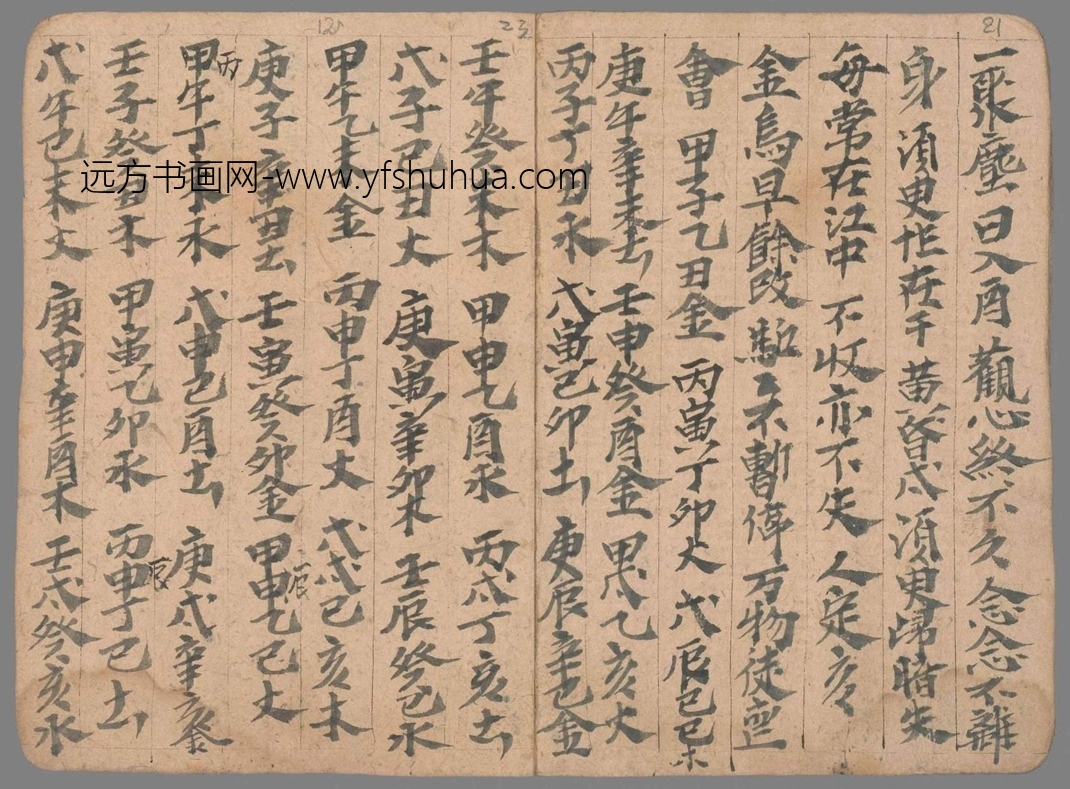 21
一聚塵日入酉觀心終不久念念不離
身須更恠在千黄昏戌須更歸暗失
毎常在江中 不收亦不失人定亥
金烏早餘改 不暫停万物徒空
會 甲子乙丑金 丙寅丁卯火 戊辰己巳木
庚午辛未土 壬申癸酉金 甲戌乙亥火
丙子丁丑水 戊寅己卯土 庚辰辛巳金
壬午癸未木 甲申乙酉水 丙戌丁亥土
戊子己丑火 庚寅辛卯木 壬辰癸巳水
甲午乙未金 丙申丁酉火 戊戌己亥木
庚子辛丑土 壬寅癸卯金 甲申辰乙巳火
丙甲午丁未水 戊申己酉土 庚戌辛亥金
壬子癸丑木 甲寅乙卯水 丙申辰丁巳土
戊午己未火 庚申辛酉木 壬戌癸亥水
远方书画网-www.yfshuhua.com